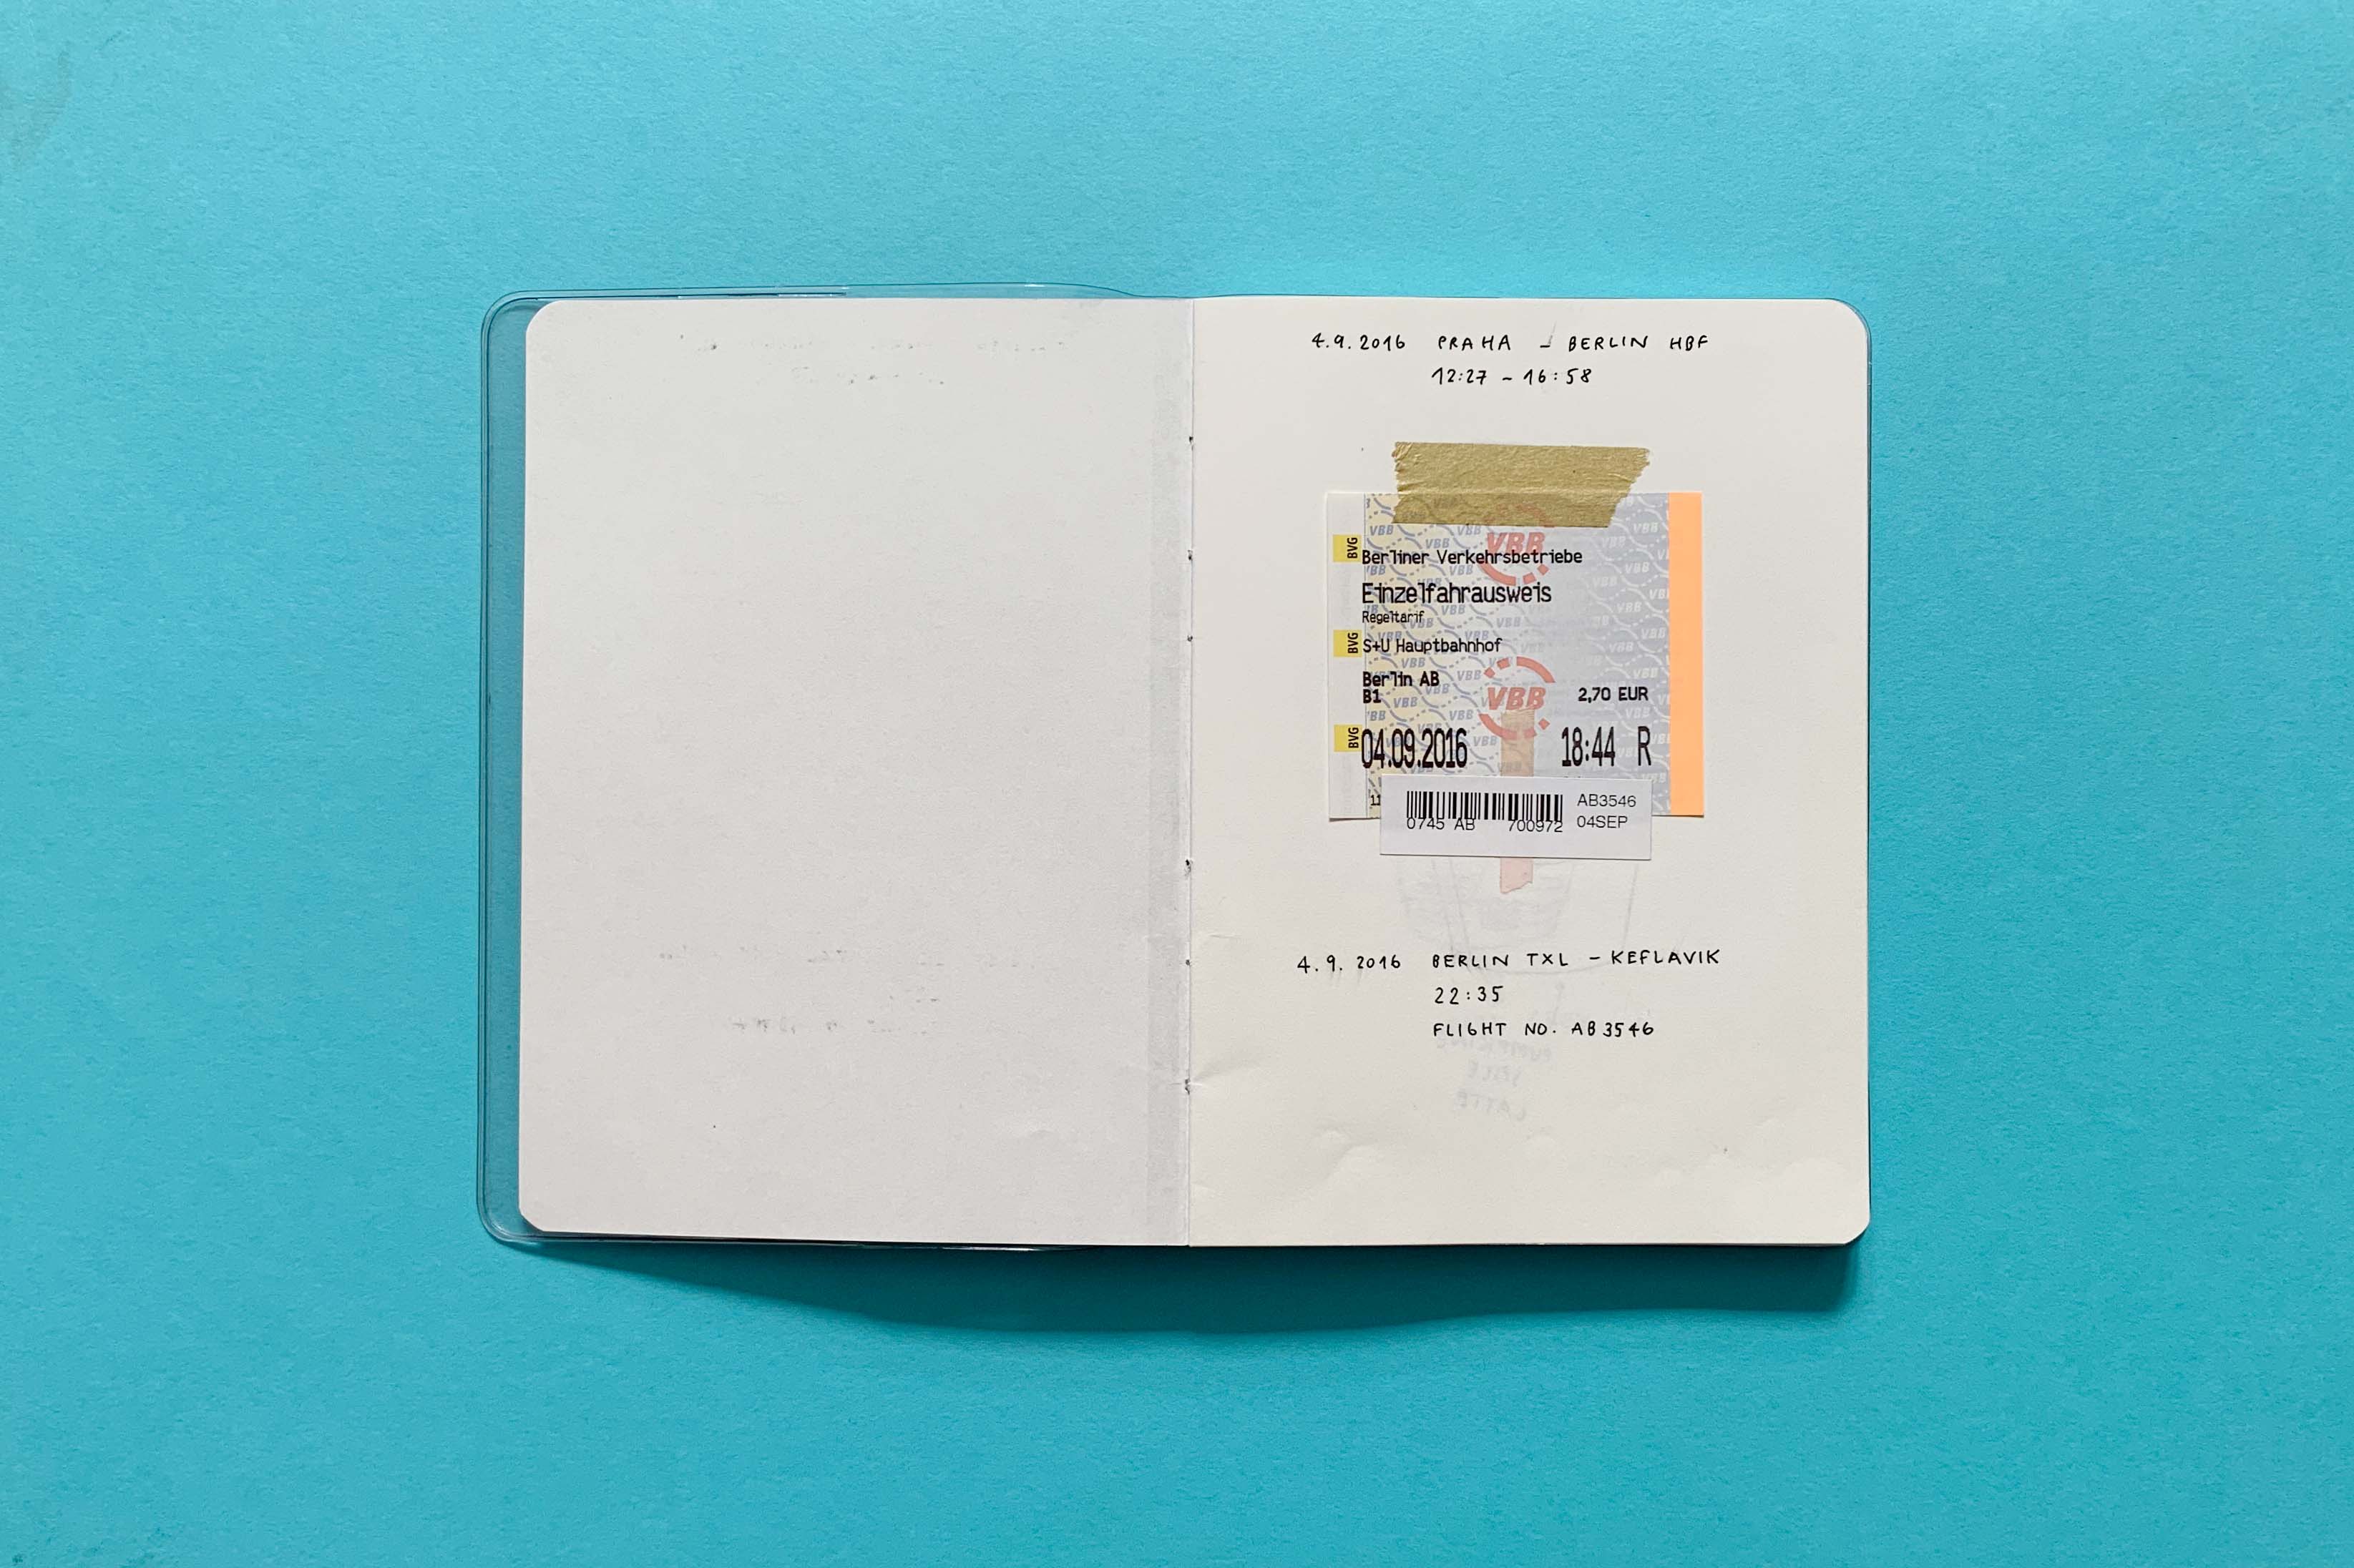 4.9.2016 PRAHA – BERLIN HBF
12:27 – 16:58
VBB
BVG Berliner Verkehrsbetriebe
Einzelfahrausweis
Regeltarif
BVG S+U Hauptbahnhof
Berlin AB
VBB
B1 2,70 EUR
BVG 04.09.2016 18:44 R
AB3546
0745 AB 700972 04SEP
4.9.2016 BERLIN TXL – KEFLAVIK
22:35
FLIGHT NO. AB3546